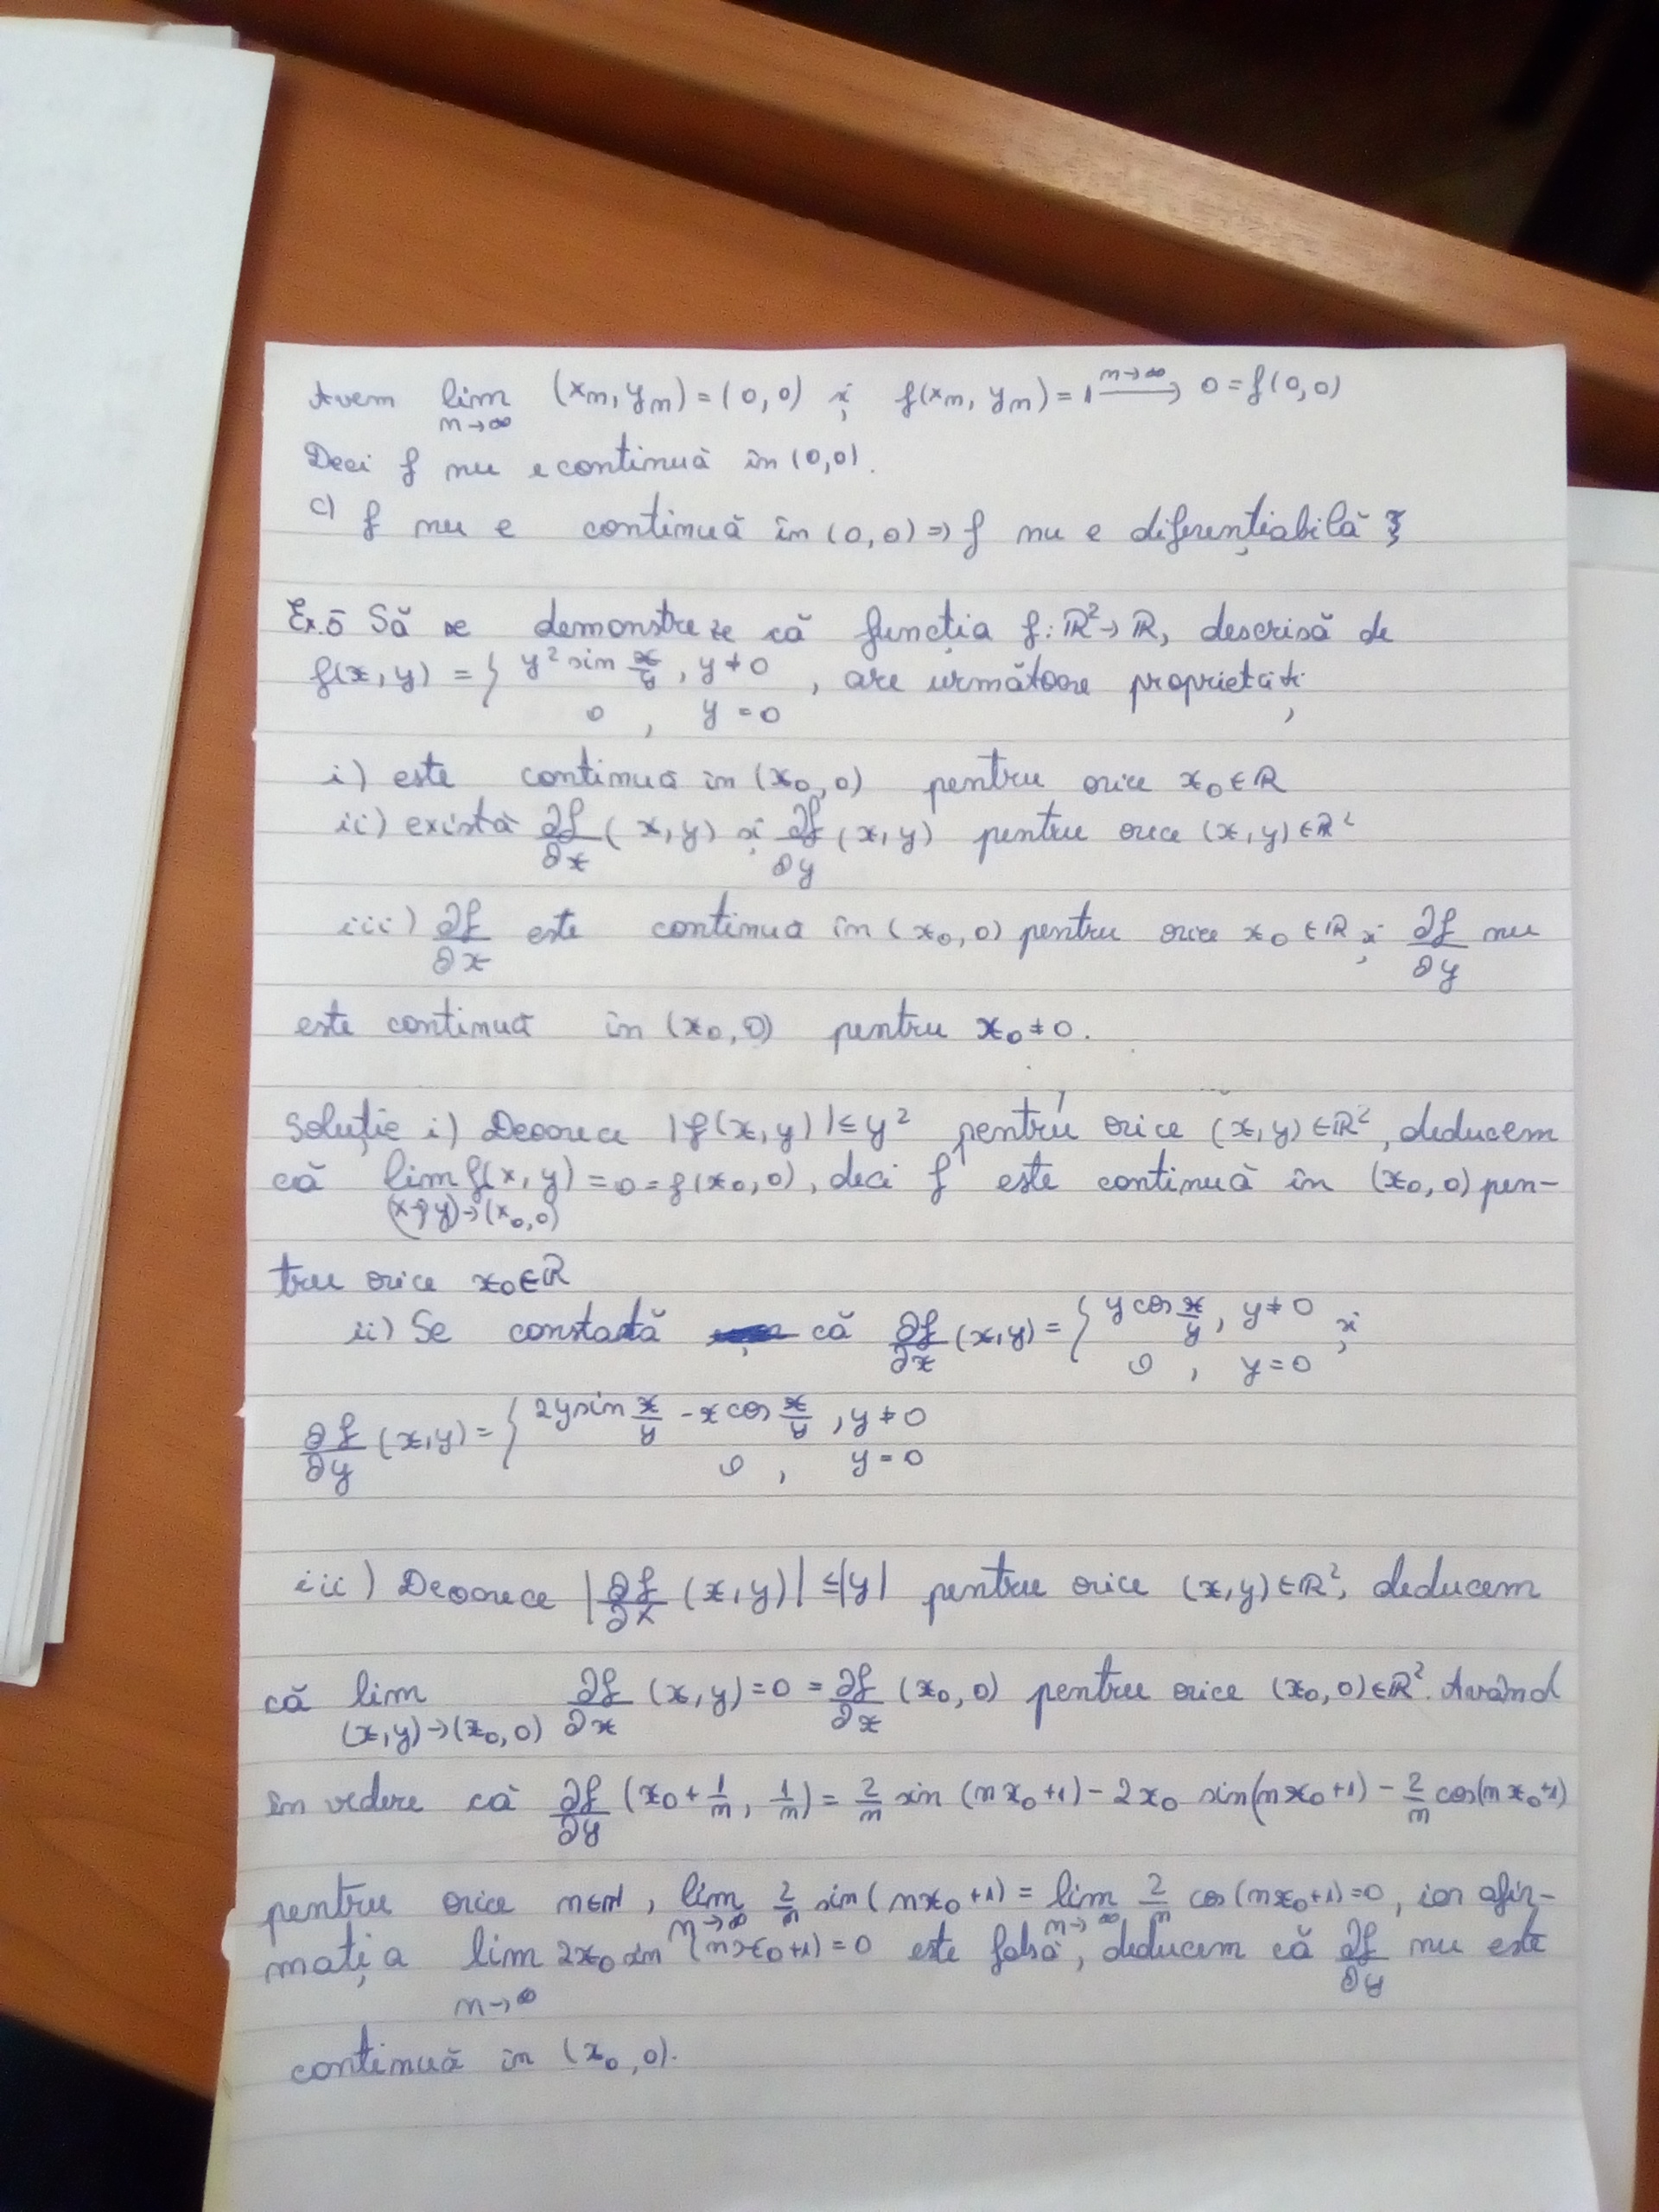 Avem lim (xn, yn) = (0, 0) și f(xn, yn) = 1 n→∞ → 0 = f(0, 0)
n→∞
Deci f nu e continuă în (0,0).
c) f nu e continuă în (0,0) ⇒ f nu e diferențiabilă
Ex.5 Să se demonstreze că funcția f: ℝ² → ℝ, descrisă de
f(x, y) = { y² sin x/y, y ≠ 0 , are următoare proprietăți
0 , y = 0
i) este continuă în (x₀, 0) pentru orice x₀ ∈ ℝ
ii) există ∂f/∂x (x, y) și ∂f/∂y (x, y) pentru orice (x, y) ∈ ℝ²
iii) ∂f/∂x este continuă în (x₀, 0) pentru orice x₀ ∈ ℝ și ∂f/∂y nu
este continuă în (x₀, 0) pentru x₀ ≠ 0.
Soluție i) Deoarece |f(x, y)| ≤ y² pentru orice (x, y) ∈ ℝ², deducem
că lim f(x, y) = 0 = f(x₀, 0), deci f este continuă în (x₀, 0) pen-
(x, y) → (x₀, 0)
tru orice x₀ ∈ ℝ
ii) Se constată că ∂f/∂x (x, y) = { y cos x/y, y ≠ 0 și
0 , y = 0
∂f/∂y (x, y) = { 2y sin x/y - x cos x/y , y ≠ 0
0 , y = 0
iii) Deoarece |∂f/∂x (x, y)| ≤ |y| pentru orice (x, y) ∈ ℝ², deducem
că lim ∂f/∂x (x, y) = 0 = ∂f/∂x (x₀, 0) pentru orice (x₀, 0) ∈ ℝ². Având
(x, y) → (x₀, 0)
în vedere că ∂f/∂y (x₀ + 1/n, 1/n) = 2/n sin (nx₀+1) - 2x₀ sin(nx₀+1) - 2/n cos(nx₀+1)
pentru orice n∈ℕ, lim 2/n sin(nx₀+1) = lim 2/n cos(nx₀+1) = 0, iar afir-
n→∞ n→∞
mația lim 2x₀ sin (nx₀+1) = 0 este falsă, deducem că ∂f/∂y nu este
n→∞
continuă în (x₀, 0).